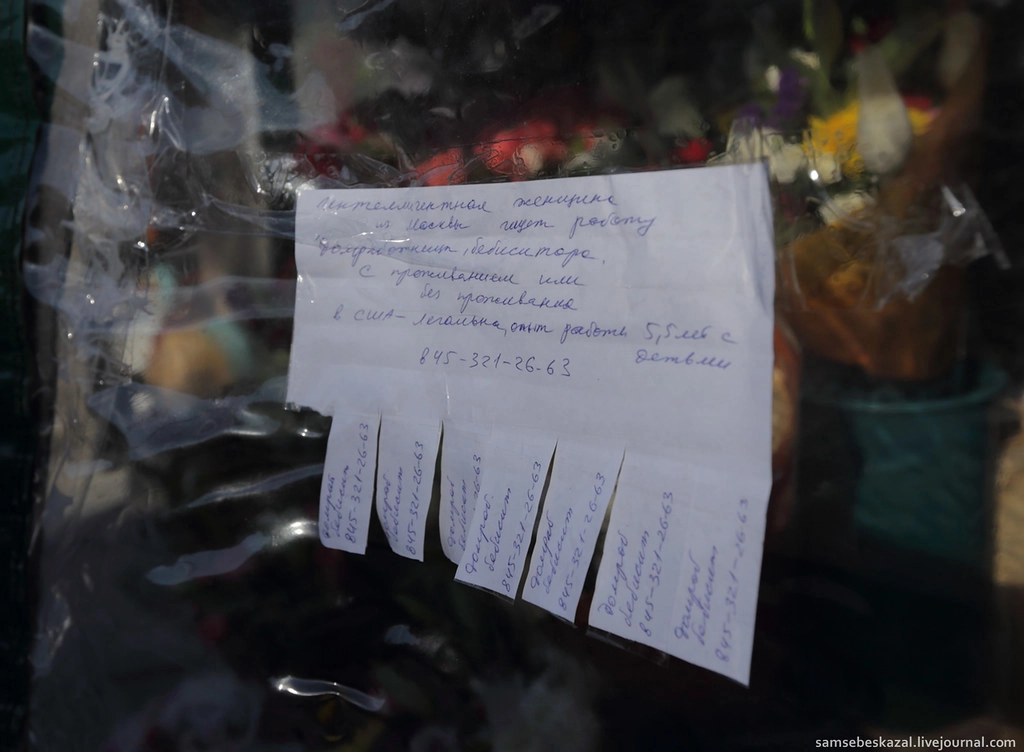 Интеллигентная женщина
из Москвы ищет работу
домработницы, бебиситора,
с проживанием или
без проживания
в США - легальна, опыт работы 5,5 лет с
детьми
845-321-26-63
845-321-26-63
845-321-26-63
домраб
845-321-26-63
домраб
бебисит
845-321-26-63
домраб
бебисит
845-321-26-63
домраб
бебисит
845-321-26-63
домраб
бебисит
845-321-26-63
samsebeskazal.livejournal.com